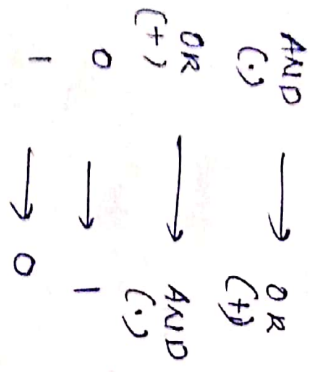 AND → OR
(·) (+)
OR → AND
(+) (·)
0 → 1
1 → 0